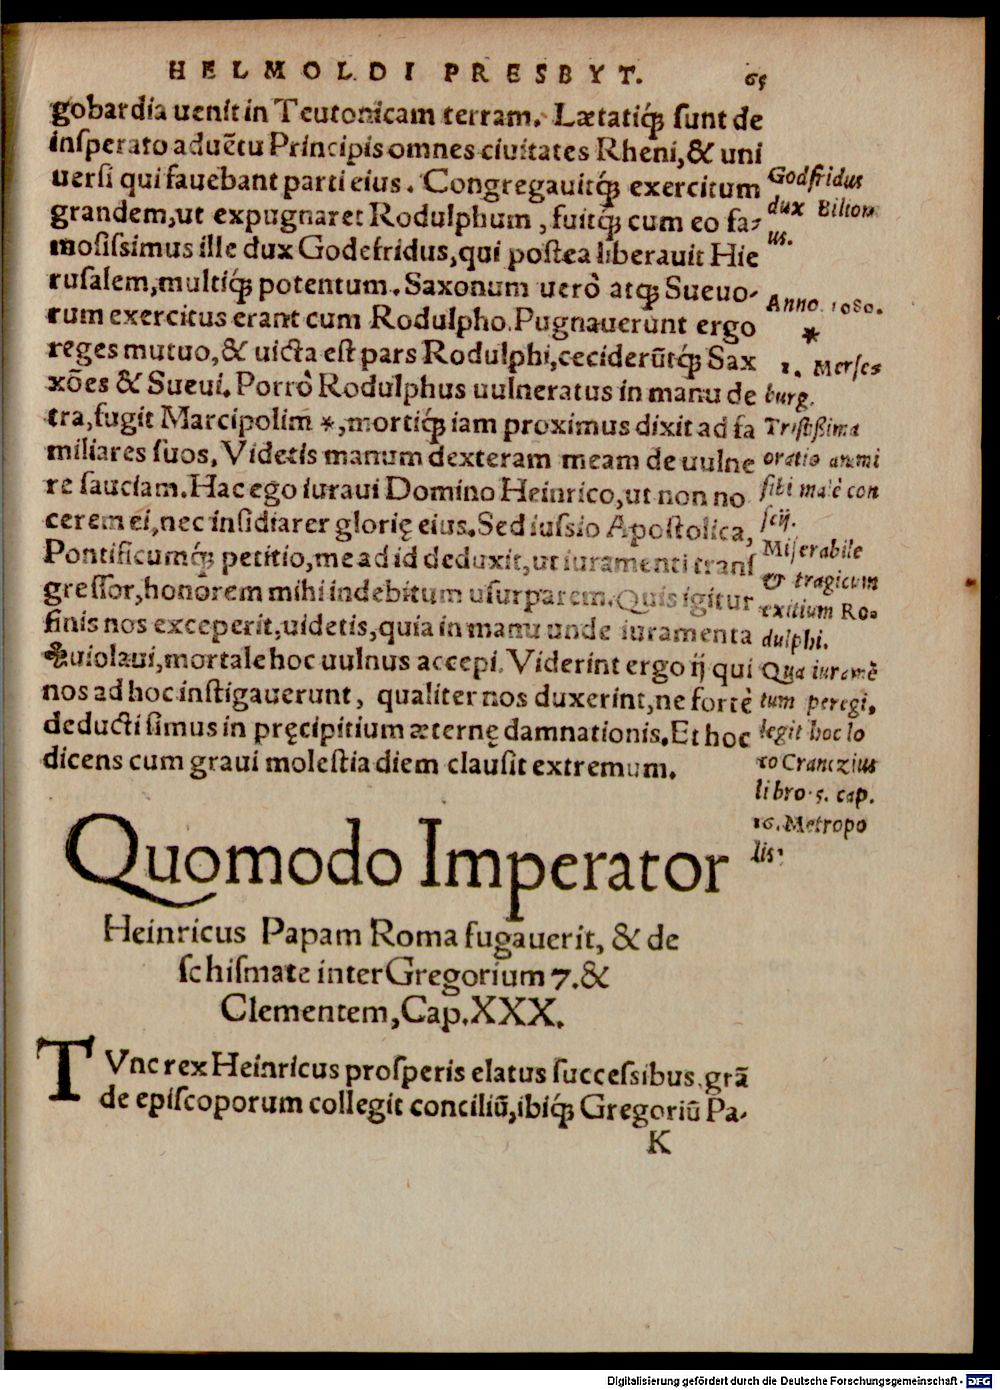 HELMOLDI PRESBYT. 65
gobardia uenit in Teutonicam terram. Lætatiq́ꝫ sunt de
insperato aduẽtu Principis omnes ciuitates Rheni, & uni
uersi qui fauebant parti eius. Congregauitq́ꝫ exercitum
grandem, ut expugnaret Rodulphum, fuitq́ꝫ cum eo fa-
mosissimus ille dux Godefridus, qui postea liberauit Hie
rusalem, multiq́ꝫ potentum. Saxonum uerò atq́ꝫ Sueuo-
rum exercitus erant cum Rodulpho. Pugnauerunt ergo
reges mutuo, & uicta est pars Rodulphi, ceciderũtq́ꝫ Sax
xões & Sueui. Porrò Rodulphus uulneratus in manu de
tra, fugit Marcipolim *, mortiq́ꝫ iam proximus dixit ad fa
miliares suos, Videtis manum dexteram meam de uulne
re sauciam. Hac ego iuraui Domino Heinrico, ut non no
cerem ei, nec insidiarer glorię eius. Sed iussio Apostolica,
Pontificumq́ꝫ petitio, me ad id deduxit, ut iuramenti trans
gressor, honorem mihi indebitum usurparem. Quis igitur
finis nos exceperit, uidetis, quia in manu unde iuramenta
uiolaui, mortale hoc uulnus accepi. Viderint ergo ij qui
nos ad hoc instigauerunt, qualiter nos duxerint, ne fortè
deducti simus in pręcipitium æternę damnationis. Et hoc
dicens cum graui molestia diem clausit extremum.
Godfridus
dux Bilion
us.
Anno. 1080.
*
1. Merses
burg.
Tristissima
oratio animi
sibi malè con
scij.
Miserabile
& tragicum
exitium Ro-
dulphi.
Qua iuramẽ
tum peregi,
legit hoc lo
co Cranczius
libro. 5. cap.
16. Metropo
lis.
Quomodo Imperator
Heinricus Papam Roma fugauerit, & de
schismate inter Gregorium 7. &
Clementem, Cap. XXX.
TVnc rex Heinricus prosperis elatus successibus, grã
de episcoporum collegit conciliũ, ibiq́ꝫ Gregoriũ Pa-
K
Digitalisierung gefördert durch die Deutsche Forschungsgemeinschaft - DFG